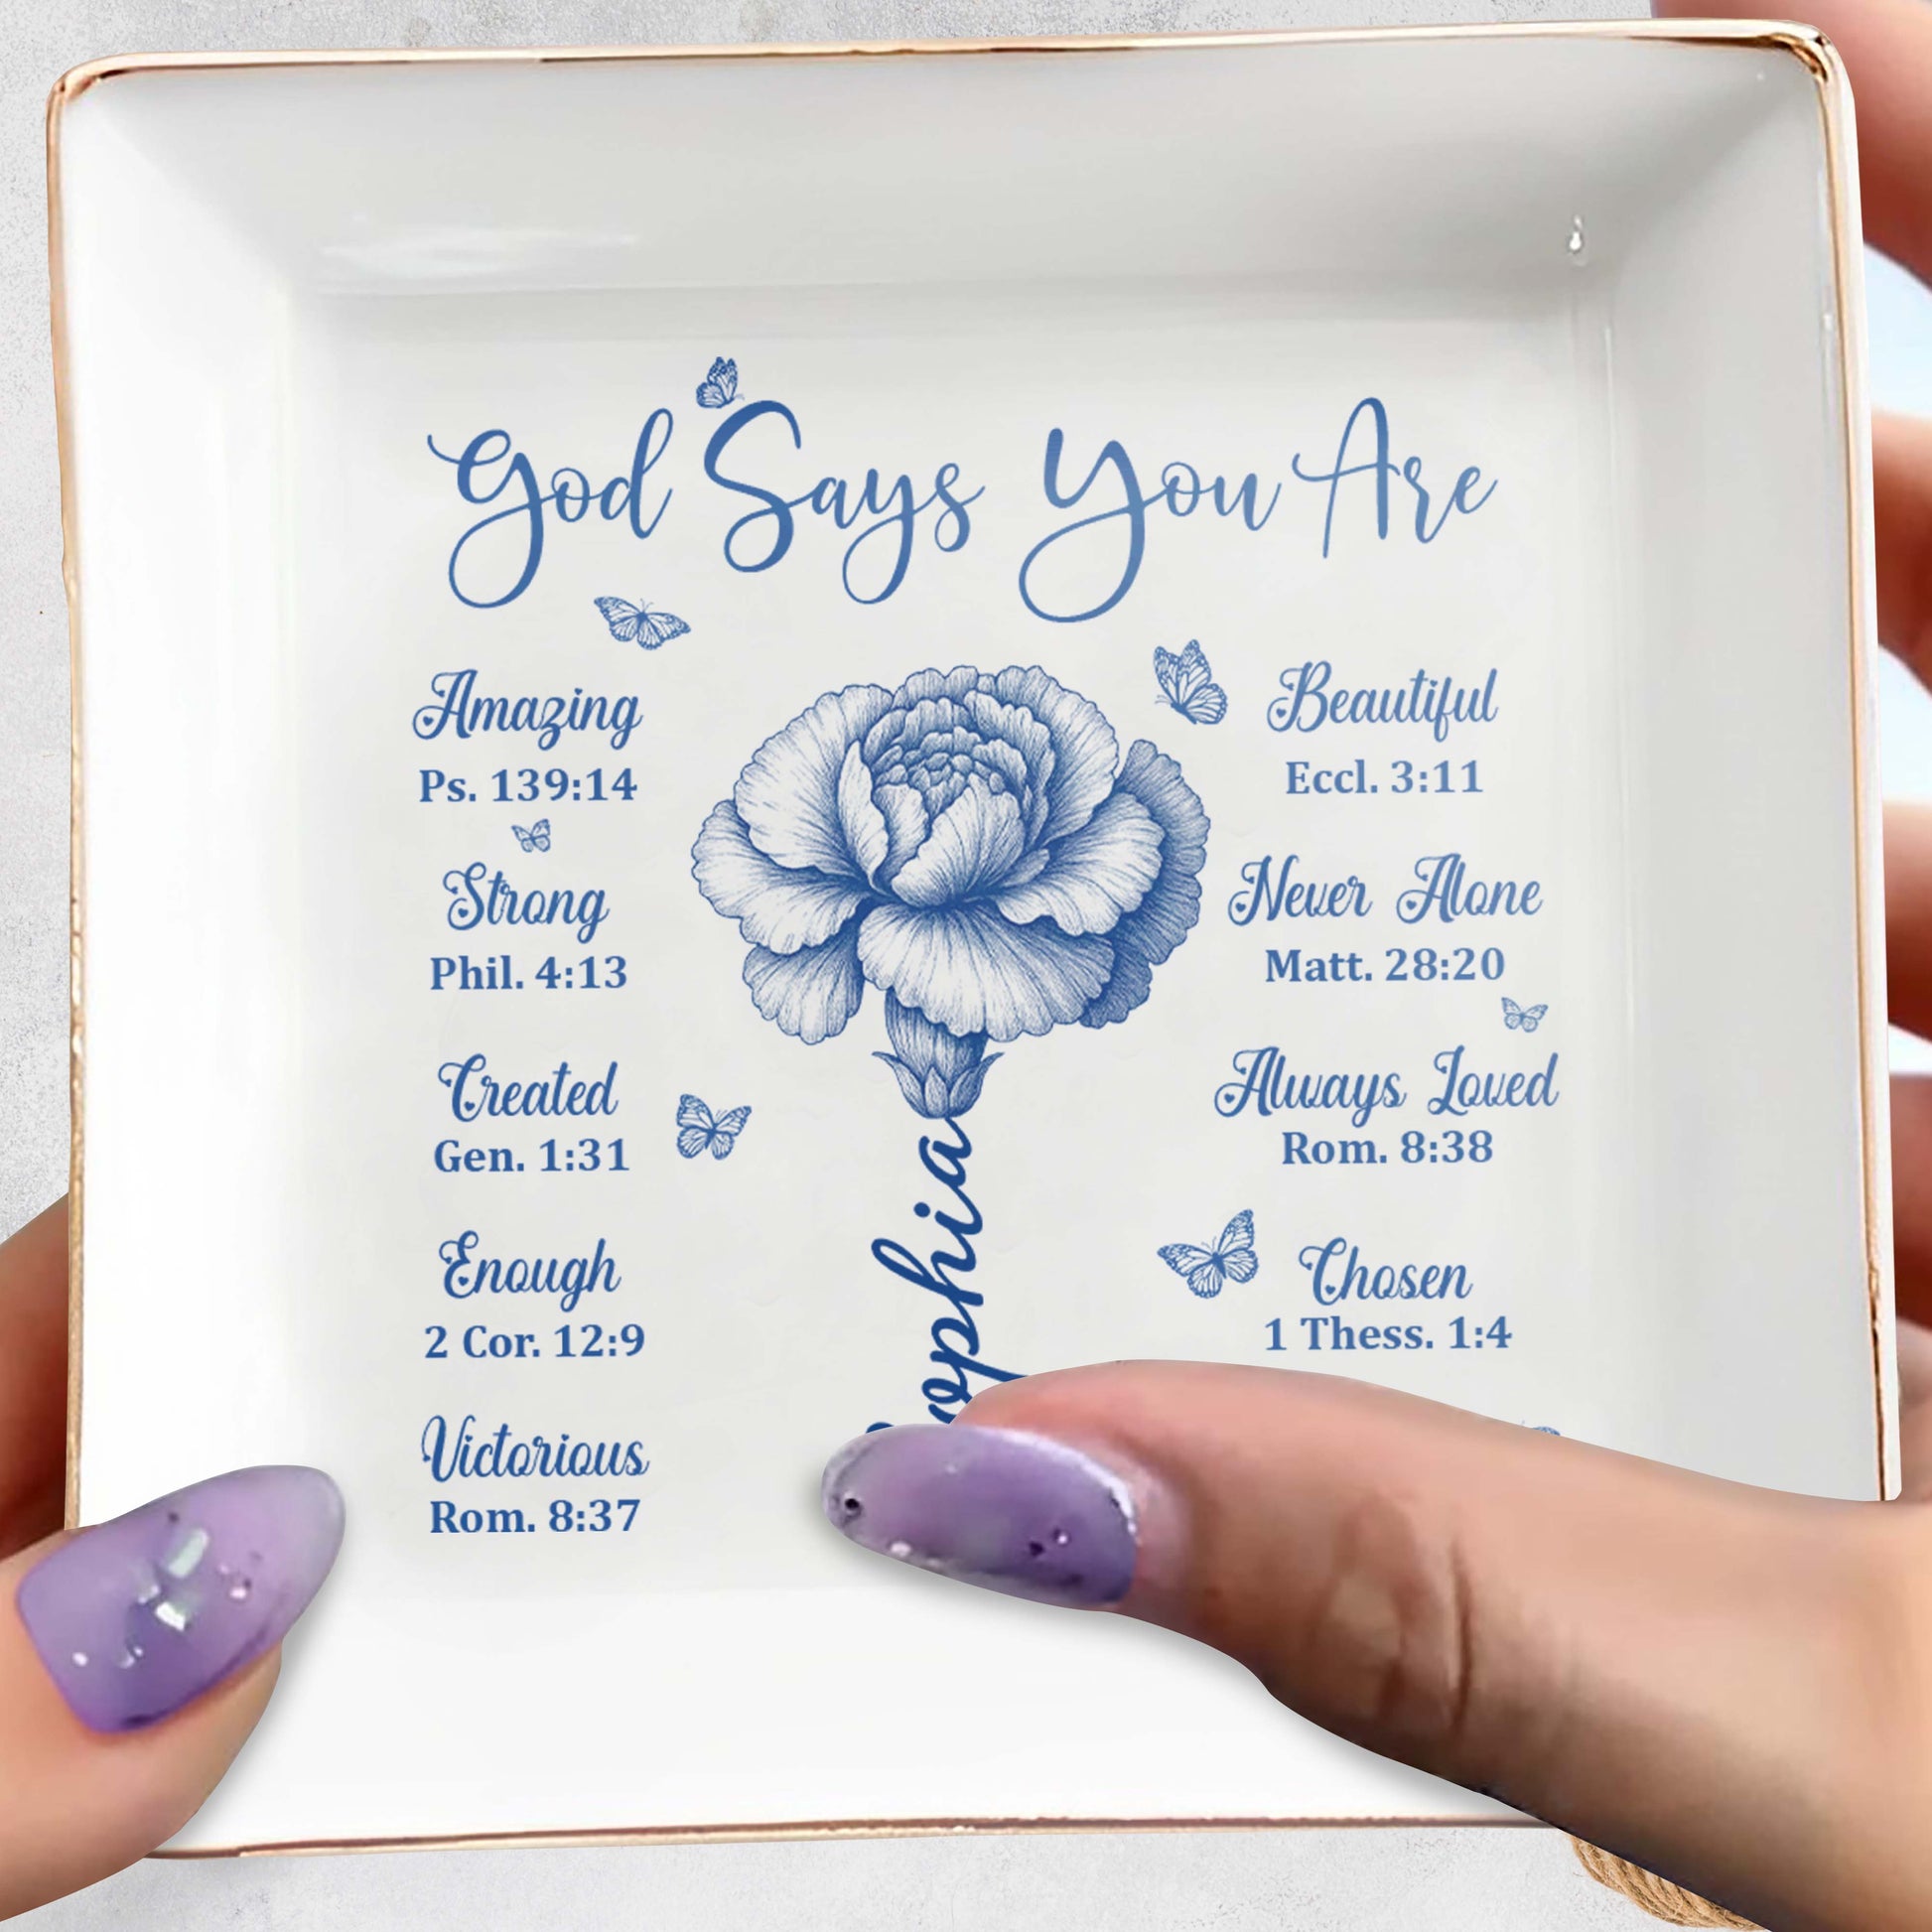 God Says You Are
Amazing
Ps. 139:14
Strong
Phil. 4:13
Created
Gen. 1:31
Enough
2 Cor. 12:9
Victorious
Rom. 8:37
ophia
Beautiful
Eccl. 3:11
Never Alone
Matt. 28:20
Always Loved
Rom. 8:38
Chosen
1 Thess. 1:4